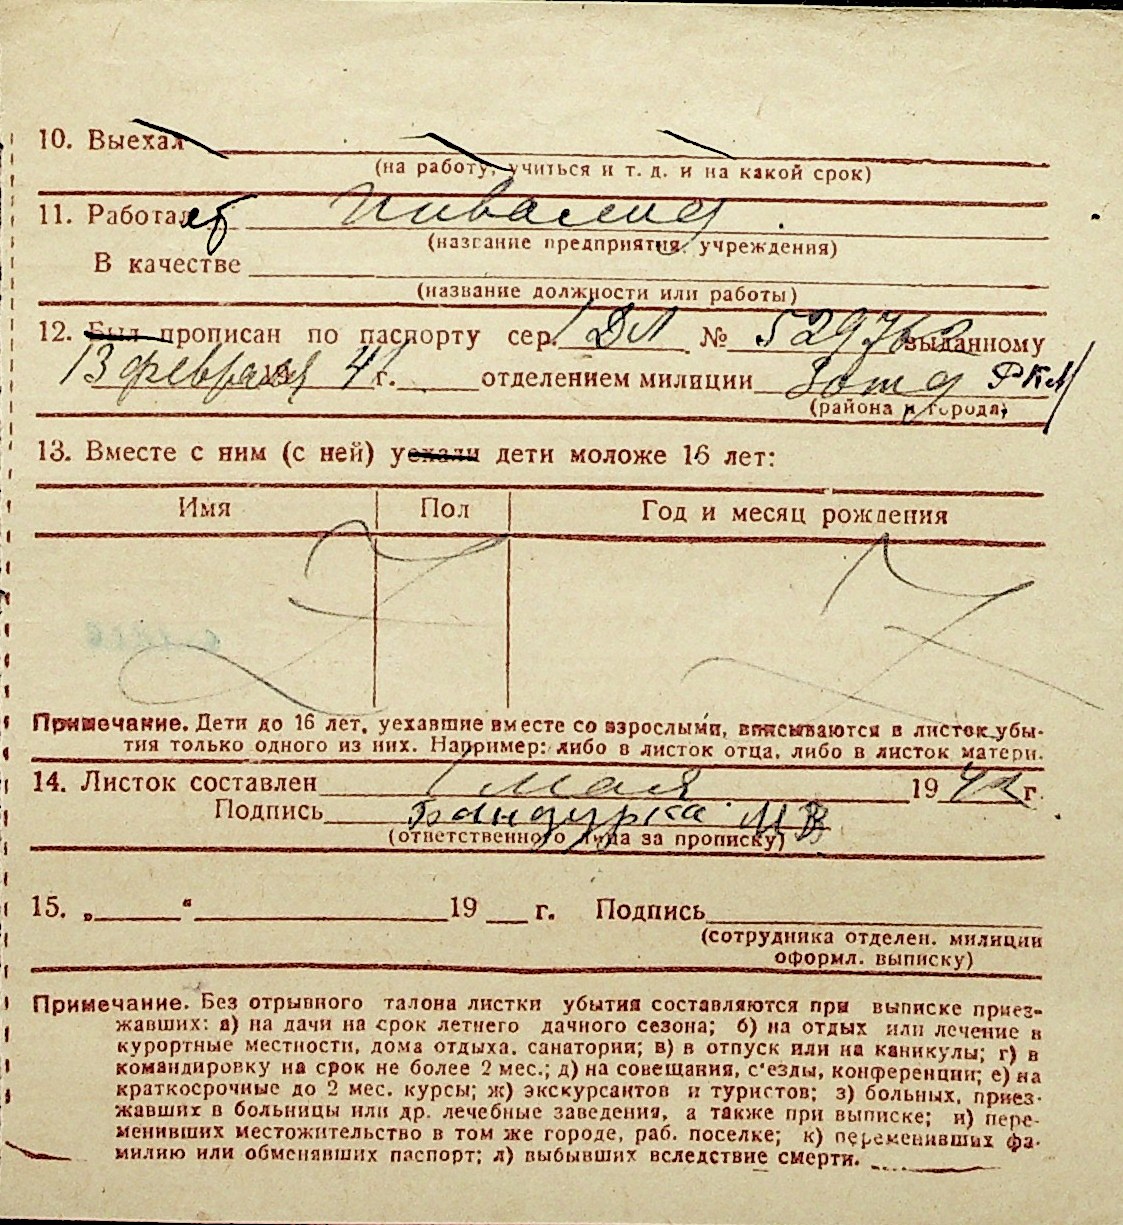 10. Выехал
(на работу, учиться и т. д. и на какой срок)
11. Работает Инвалид
(название предприятия, учреждения)
В качестве
(название должности или работы)
12. Был прописан по паспорту сер. ДЛ № 529762 выданному
13 февраля 41 г. отделением милиции РКМ
(района и города)
13. Вместе с ним (с ней) уехали дети моложе 16 лет:
Имя Пол Год и месяц рождения
Примечание. Дети до 16 лет, уехавшие вместе со взрослыми, вписываются в листок убы-
тия только одного из них. Например: либо в листок отца, либо в листок матери.
14. Листок составлен 1 мая 1942 г.
Подпись Бандурка М В
(ответственного лица за прописку)
15. „ “ 19 г. Подпись
(сотрудника отделен. милиции
оформл. выписку)
Примечание. Без отрывного талона листки убытия составляются при выписке приез-
жавших: а) на дачи на срок летнего дачного сезона; б) на отдых или лечение в
курортные местности, дома отдыха, санатории; в) в отпуск или на каникулы; г) в
командировку на срок не более 2 мес.; д) на совещания, с'езды, конференции; е) на
краткосрочные до 2 мес. курсы; ж) экскурсантов и туристов; з) больных, приез-
жавших в больницы или др. лечебные заведения, а также при выписке; и) пере-
менивших местожительство в том же городе, раб. поселке; к) переменивших фа-
милию или обменявших паспорт; л) выбывших вследствие смерти.